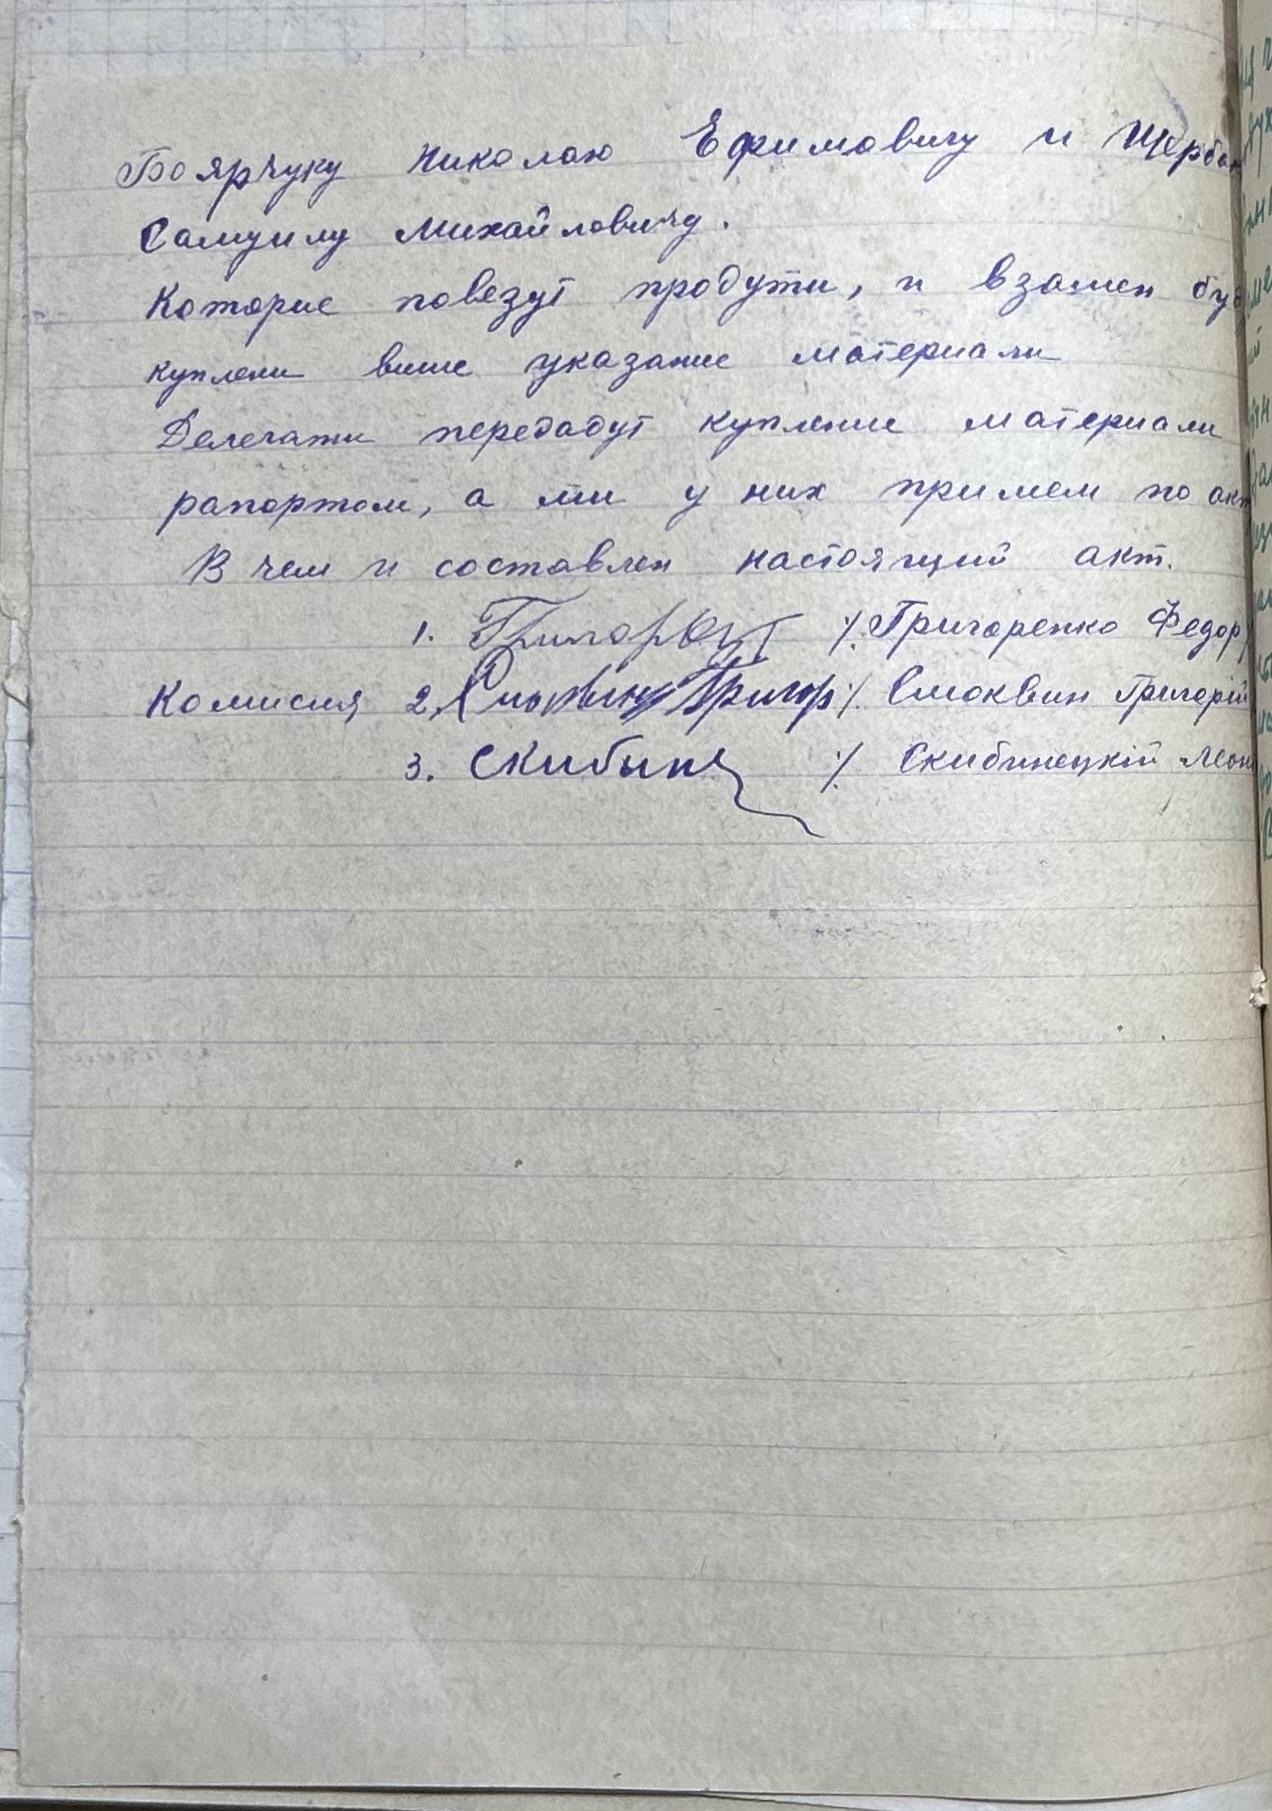 Боярчуку Николаю Ефимовичу и Щербан
Самуилу Михайловичу.
Которие повезут продути, и взамен буд
куплени више указание материали
Делегати передадут купление материали
рапортом, а ми у них примем по акт
В чем и составлен настоящий акт.
1. /. Григоренко Федор
Комисия 2. /. Смоквин Григорій
3. Скибин /. Скибинецкій Леон